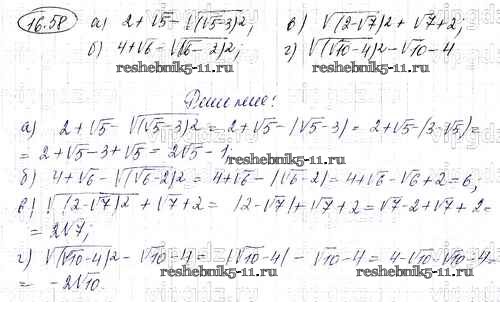 16.58 а) 2+√5-√(√5-3)²; в) √(2-√7)²+√7+2;
б) 4+√6-√(√6-2)²; г) √(√10-4)²-√10-4
reshebnik5-11.ru reshebnik5-11.ru
Решение:
а) 2+√5-√(√5-3)²=2+√5-|√5-3|=2+√5-(3-√5)=
=2+√5-3+√5=2√5-1;
reshebnik5-11.ru
б) 4+√6-√(√6-2)²=4+√6-(√6-2)=4+√6-√6+2=6;
в) √(2-√7)²+√7+2=|2-√7|+√7+2=√7-2+√7+2=
=2√7;
г) √(√10-4)²-√10-4=|√10-4|-√10-4=4-√10-√10-4=
=-2√10.
reshebnik5-11.ru reshebnik5-11.ru